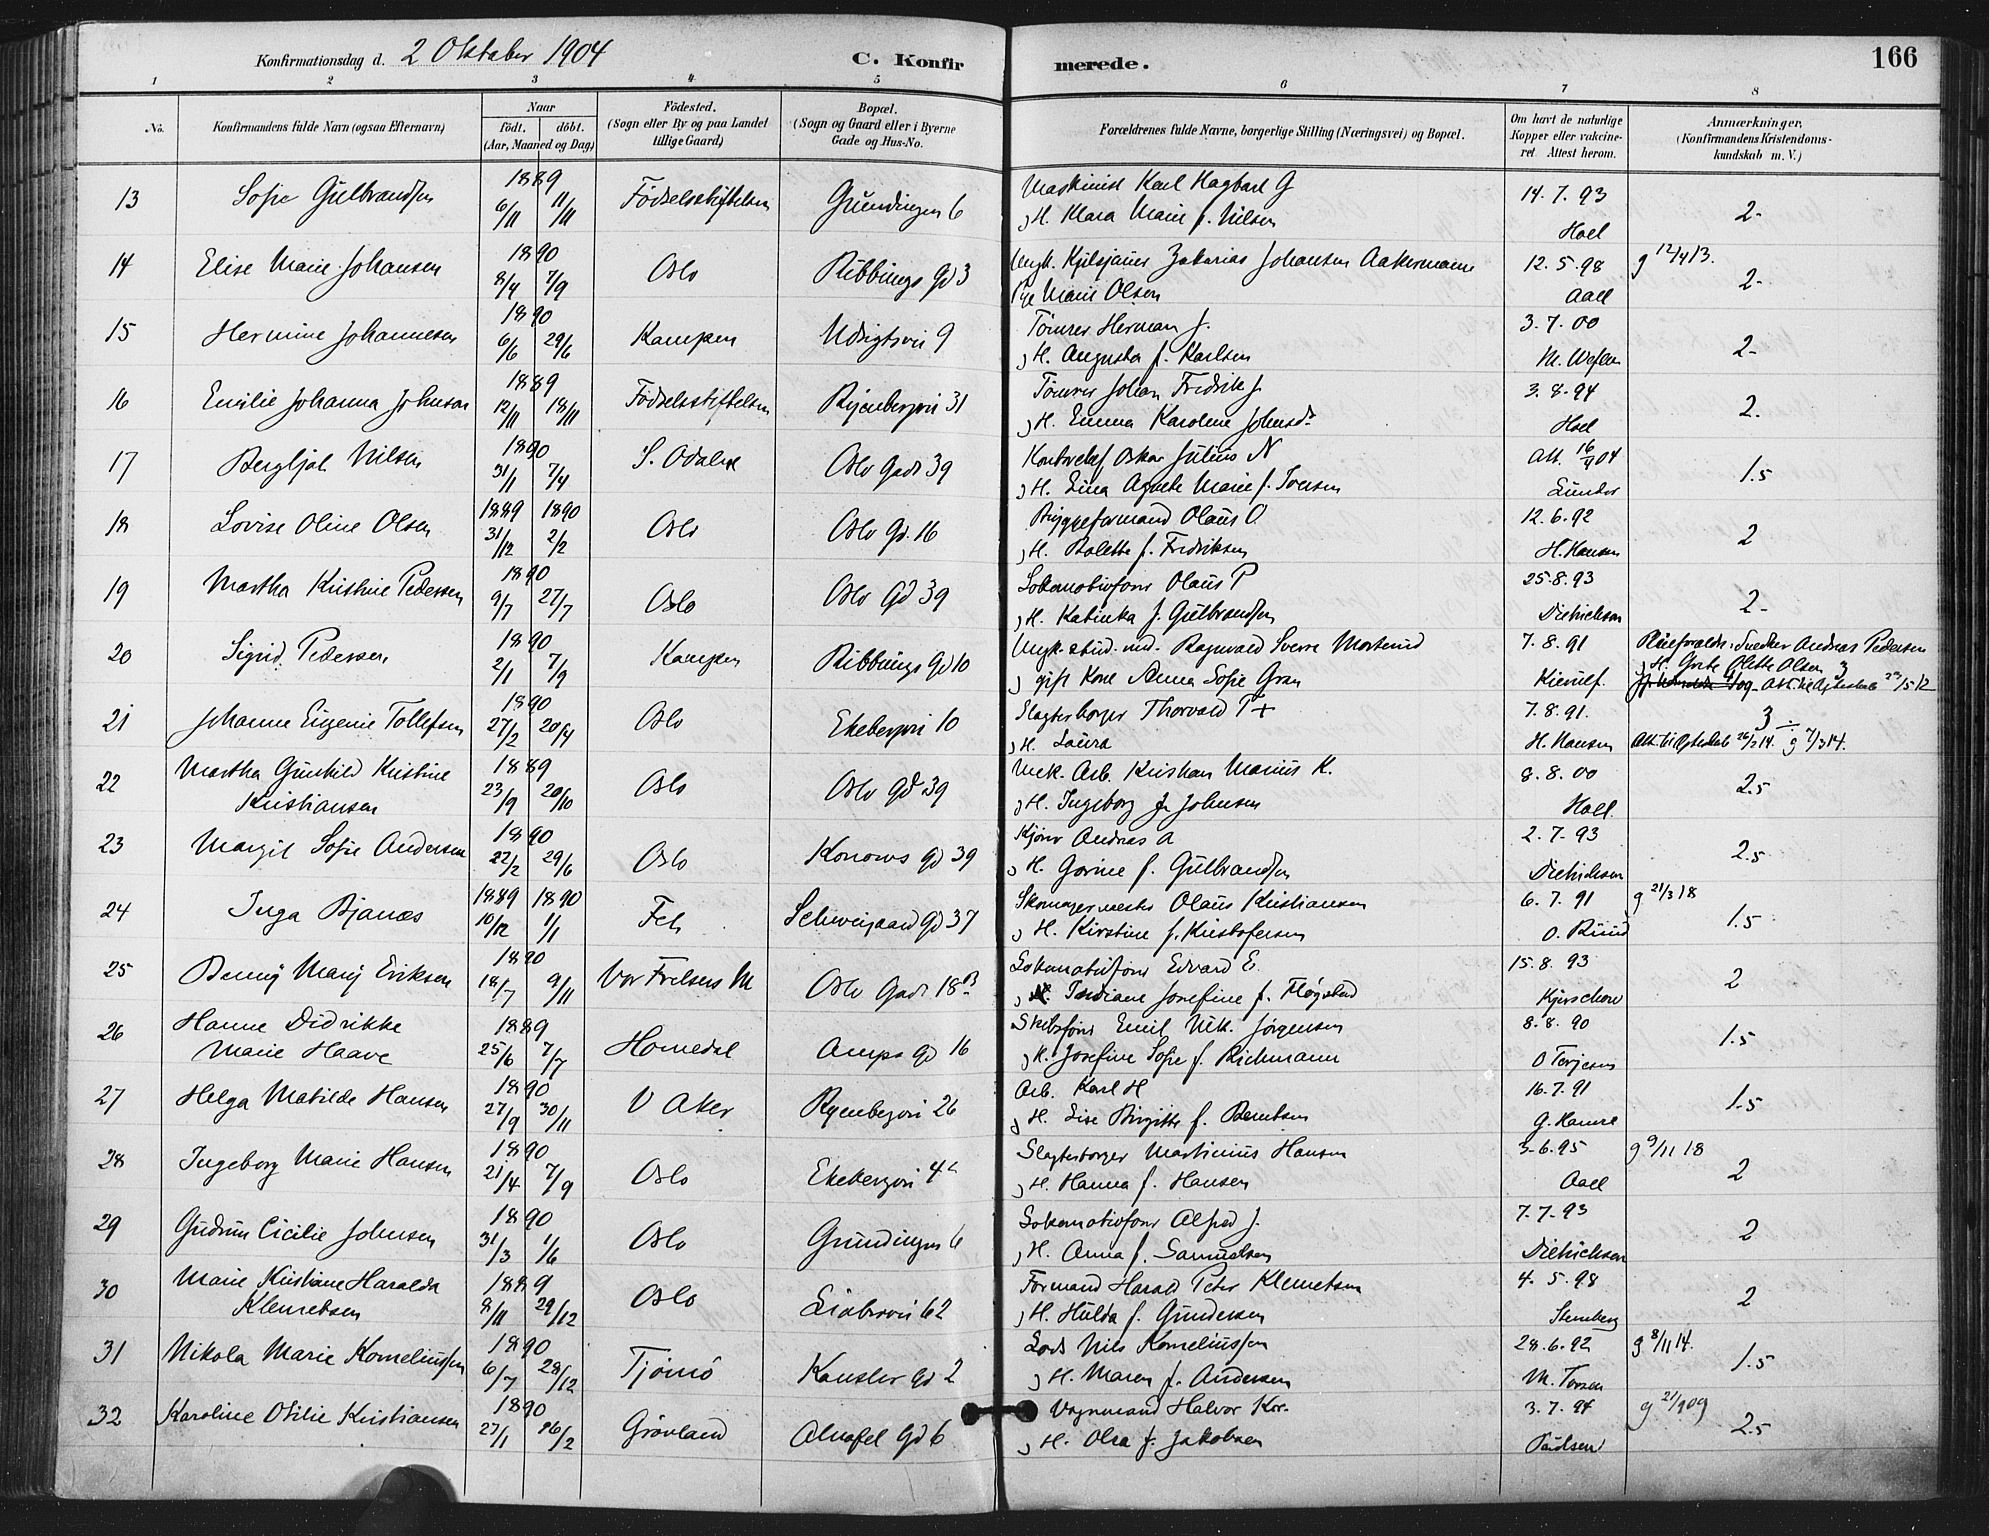 Konfirmationsdag d. 2 Oktober 1904 C. Konfirmerede. 166
1 2 3 4 5 6 7 8
No. Konfirmandens fulde Navn (ogsaa Efternavn) Naar født. døbt. (Aar, Maaned og Dag) Fødested. (Sogn eller By og paa Landet tillige Gaard) Bopæl. (Sogn og Gaard eller i Byerne Gade og Hus-No. Forældrenes fulde Navne, borgerlige Stilling (Næringsvei) og Bopæl. Om havt de naturlige Kopper eller vakcineret Attest herom. Anmærkninger, (Konfirmandens Kristendomskundskab m. V.)
13 Sofie Gulbrandsen 1889 6/11 11/11 Fødselsstiftelsen Grundingen 6 Maskinist Karl Hagbart G 14.7.93
H. Klara Marie f. Nilsen Hoel 2-
14 Elise Marie Johansen 1890 8/4 7/9 Oslo Ribbungs Gd 3 Ungk. Zakarias Johansen Aakermann 12.5.98 g 12/4 13.
Pige Marie Olsen Aall 2-
15 Hermine Johannesen 1890 6/6 29/6 Kampen Udsigtsvei 9 Tømrer Herman J. 3.7.00
H. Augusta f. Karlsen 2-
16 Emilie Johanna Johnsen 1889 12/11 18/11 Fødselsstiftelsen Ryenbergvei 31 Tømrer Johan Fredrik J. 3.8.94
H. Emma Karoline Johnsdt. Hoel 2.
17 Bergljot Nilsen 1890 31/1 7/4 S. Odalen Oslo Gade 39 Oskar Julius N Att. 16/9 04
H. Lina Agnete Marie f. Iversen 1.5
18 Lovise Oline Olsen 1889 31/12 1890 2/2 Oslo Oslo Gd. 16 Bryggeformand Olaus O. 12.6.92
H. Bolette f. Fredriksen H. Hansen 2
19 Martha Kristine Pedersen 1890 9/7 27/7 Oslo Oslo Gd 39 Lokomotivfører Olaus P 25.8.93
H. Katinka f. Gulbrandsen Dietrichson 2-
20 Sigrid Pedersen 1890 2/1 7/9 Kampen Ribbungs Gd 10 Ungk. stud. med. Ragnvald Sverre Mortend 7.8.91 Pleieforældre: Snedker Andreas Pedersen
gift Kone Anna Sofie Gran Kierulf. H. Grete Olette Olsen 3
Att. til Ægteskab 23/5 12
21 Johanne Eugenie Tollefsen 1890 27/2 20/4 Oslo Ekebergvei 10 Slagterborger Thorvald T + 7.8.91. 3 ÷
H. Laura H. Hansen Att. til Ægteskab 26/2 14. g 7/3 14.
22 Martha Gunhild Kristine Kristiansen 1889 23/9 20/10 Oslo Oslo Gd 39 Mek. Arb. Kristian Marius K. 8.8.00
H. Ingeborg f. Johnsen Hoel 2.5
23 Margit Sofie Andersen 1890 22/2 29/6 Oslo Konows Gd 39 Andreas A 2.7.93
H. Gorine f. Gulbrandsen Dietrichson 2.5
24 Inga Bjanæs 1889 10/12 1890 1/1 Fet Schweigaard Gd 37 Skomagermester Olaus Kristiansen 6.7.91 g 21/3 18
H. Kirstine f. Kristofersen O. Ruud 1.5
25 Benny Mary Eriksen 1890 18/7 9/11 Vor Frelsers M Oslo Gade 18 B Lokomotivfører Edvard E. 15.8.93
Josefine f. Fløgstad Kjerschow 2
26 Hanne Didrikke Marie Haave 1889 25/6 7/7 Homedal Amps Gd 16 Skibsfører Emil Nik. Jørgensen 8.8.90
K. Josefine Sofie f. Richmann O Terjesen 1.5
27 Helga Matilde Hansen 1890 27/9 30/11 V Aker Ryenbergvei 26 Arb. Karl H 16.7.91
H. Lise Birgitte f. Berntsen 1.5
28 Ingeborg Marie Hansen 1890 21/4 7/9 Oslo Ekebergvei 4 Slagterborger Martinius Hansen 3-6.95 g 9/11 18
H. Hanna f. Hansen Aall 2
29 Gudrun Cicilie Johnsen 1890 31/3 1/6 Oslo Grundingen 6 Lokomotivfører Alfred J. 7-7-93
H. Anna f. Samuelsen Dietrichson 2
30 Marie Kristiane Haralda Klemetsen 1889 8/11 29/12 Oslo Liabrovei 62 Formand Harald Peter Klemetsen 4.5.98
H. Hulda f. Gundersen Stenberg 2
31 Nikola Marie Korneliussen 1890 6/7 28/12 Tjømø Kansler Gd 2 Lods Nils Korneliussen 28.6.92 g 8/11 14.
H. Maren f. Andersen 1.5
32 Karoline Otilie Kristiansen 1890 27/1 16/2 Grønland Alnafet Gd 6 Vognmand Halvor Kr. 3.7.94 g 21/9 09
H. Olea f. Jakobsen Paulsen 2.5